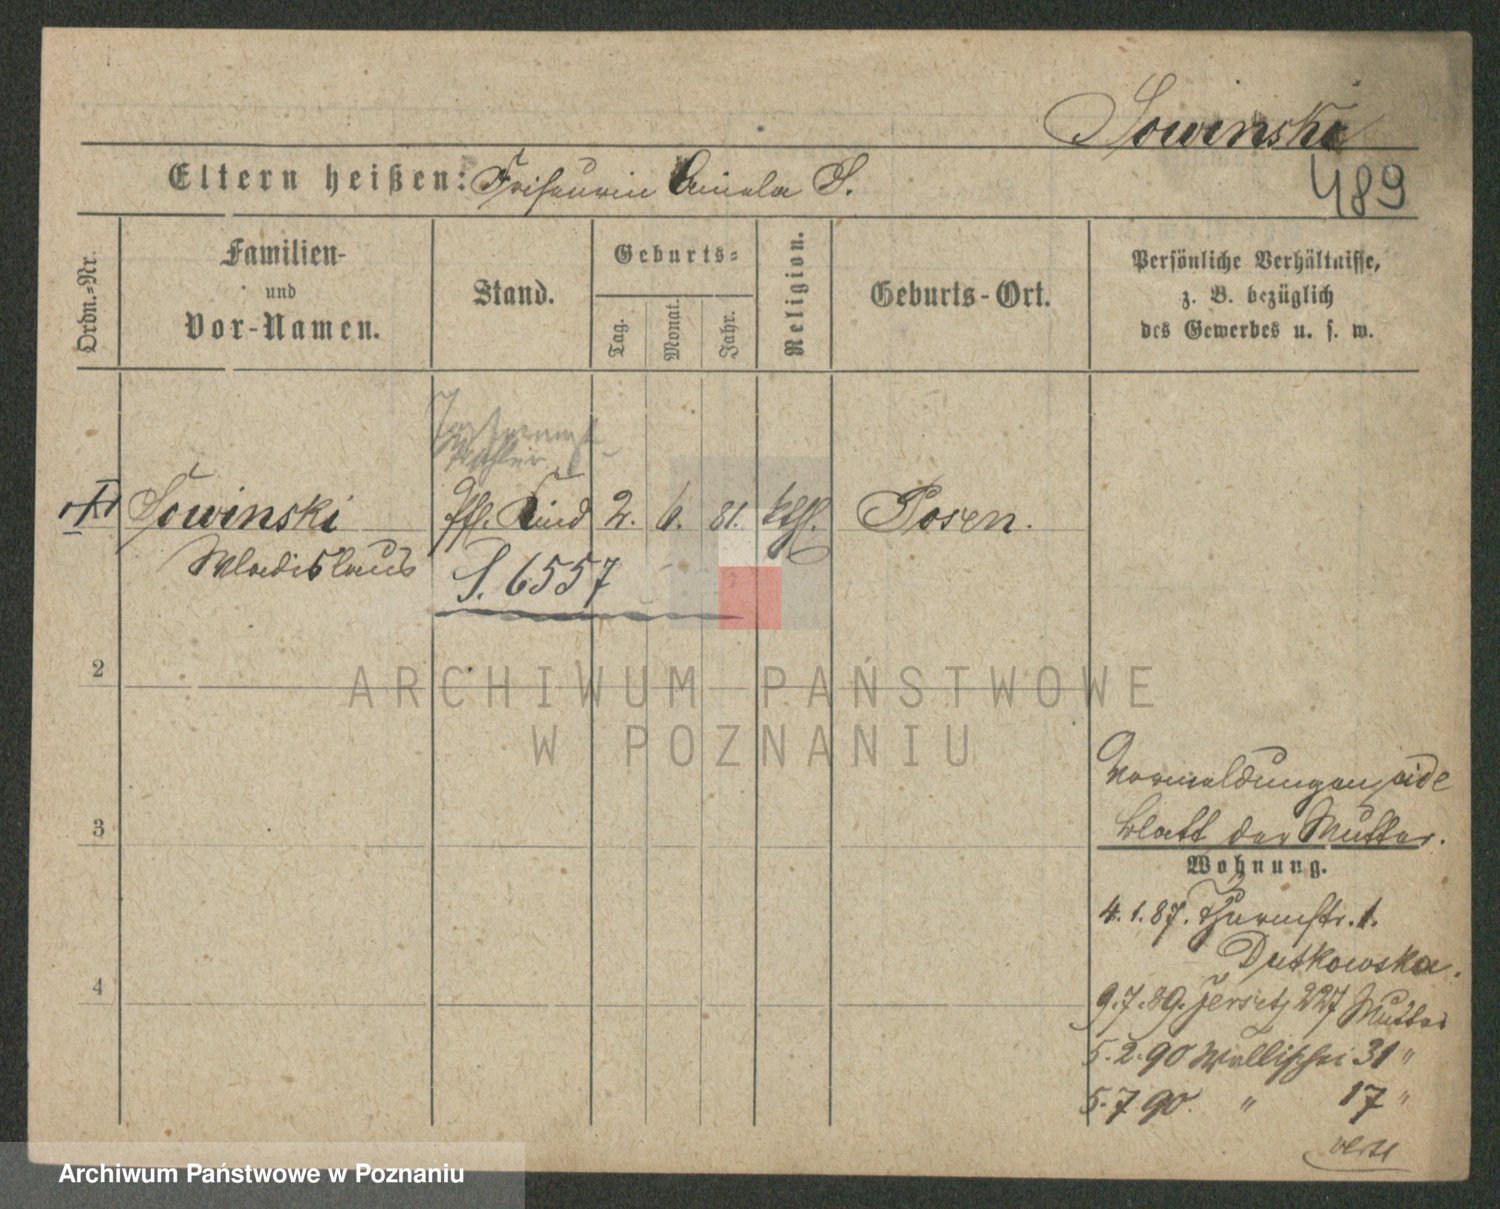 Sowinski
489
Eltern heißen: Friseurin Aniela S.
Ordn.-Nr.
Familien-
und
Vor-Namen.
Stand.
Geburts-
Tag.
Monat.
Jahr.
Religion.
Geburts-Ort.
Persönliche Verhältnisse,
z. B. bezüglich
des Gewerbes u. s. w.
Sowinski Kind 2. 6. 81. kthl. Posen.
Wladislaus S. 6557
2
ARCHIWUM PAŃSTWOWE
W POZNANIU
Vormeldungen vide
3 Blatt der Mutter.
Wohnung.
4. 1. 87. Thurmstr. 1.
Dutkowska.
4
9. 7. 89. Jersitz 227 Mutter
5. 2. 90 Wallischei 31 "
5. 7. 90. " 17 "
verte
Archiwum Państwowe w Poznaniu